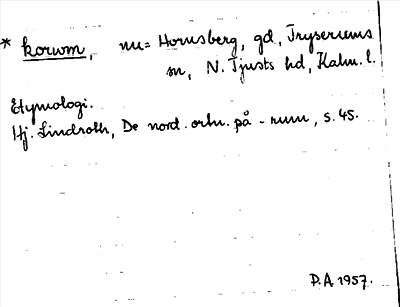 * korwm, nu = Hornsberg, gd, Tryserums
sn, N. Tjusts hd, Kalm. l.
Etymologi.
Hj. Lindroth, De nord. ortn. på -rum, s. 45.
D.A 1957.